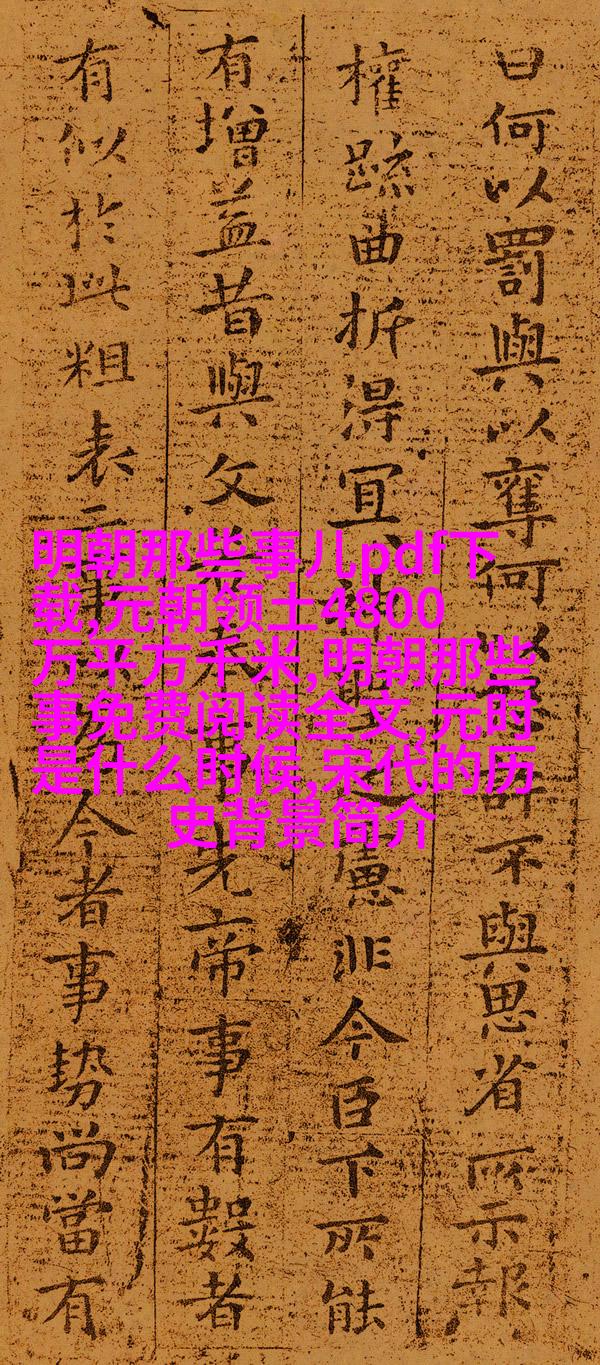 曰何以罰與以奪何許不與思省所示報
權疏曲折得宜神慮非今臣下所能
有增益昔與文奉事先帝事有數者
有似於此粗表二事今者事勢尚當有
明朝那些事儿pdf下
载,元朝领土4800
万平方千米,明朝那些
事免费阅读全文,元时
是什么时候,宋代的历
史背景简介